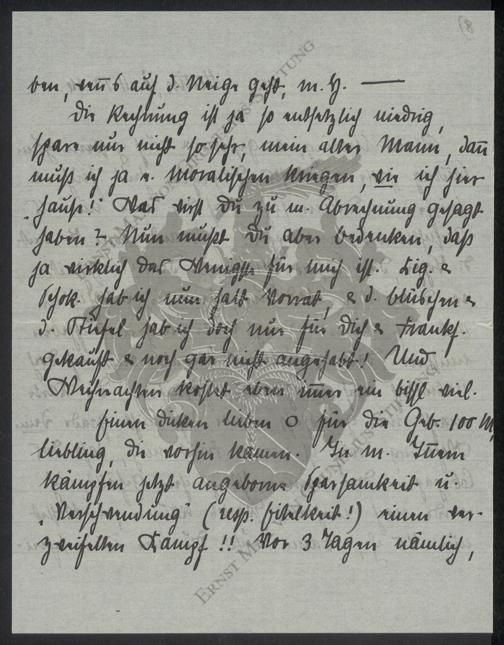 8)
ben, wenn's auf d. Neige geht, m. H. —
Die Rechnung ist ja so entsetzlich niedrig,
spare nur nicht so sehr, mein alter Mann, dann
muß ich ja e. moralischen kriegen, wie ich hier
"hause!" Was wirst Du zu m. Abrechnung gesagt
haben? Nun mußt Du aber bedenken, daß
ja wirklich das Wenigste für mich ist. Zig. &
Schok. hab ich nun halt Vorrat, & d. Blüschen &
d. Stiefel hab ich doch nur für Dich & Frankf.
gekauft & noch gar nicht angehabt! Und
Weihnachten kostet eben immer ein bissl viel.
Einen dicken lieben O für die Geb. 100 M,
Liebling, die vorhin kamen. In m. Innern
kämpfen jetzt angeborne Sparsamkeit u.
"Verschwendung" (resp. Eitelkeit!) einen ver-
zweifelten Kampf!! Vor 3 Tagen nämlich,